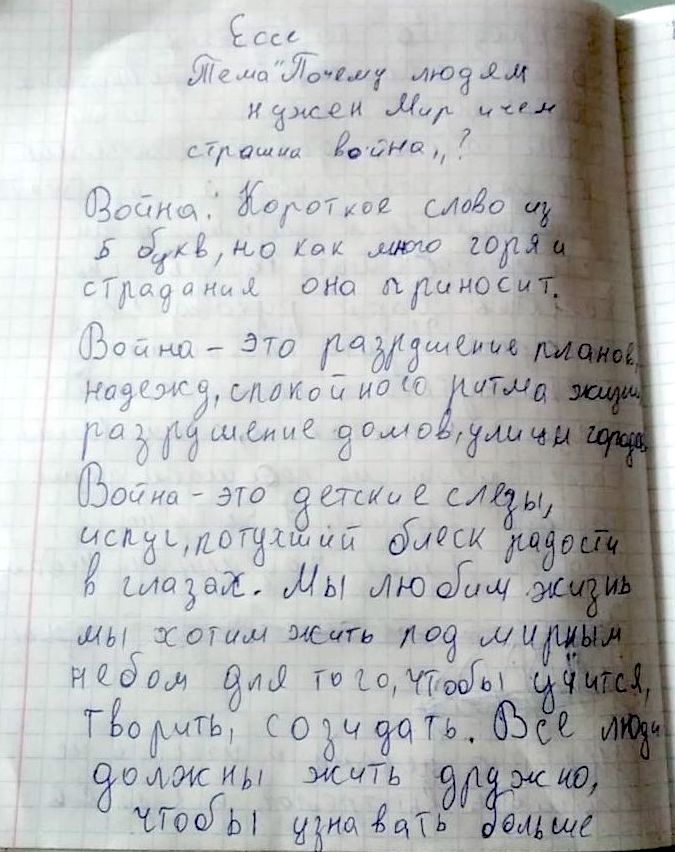 Ессе
Тема "Почему людям
нужен Мир и чем
страшна война,,?
Война: Короткое слово из
5 букв, но как много горя и
страдания она приносит.
Война – это разрушение планов,
надежд, спокойного ритма жизни
разрушение домов, улиц и городов
Война – это детские слезы,
испуг, потухший блеск радости
в глазах. Мы любим жизнь
мы хотим жить под мирным
небом для того, чтобы учится,
творить, созидать. Все люди
должны жить дружно,
чтобы узнавать больше